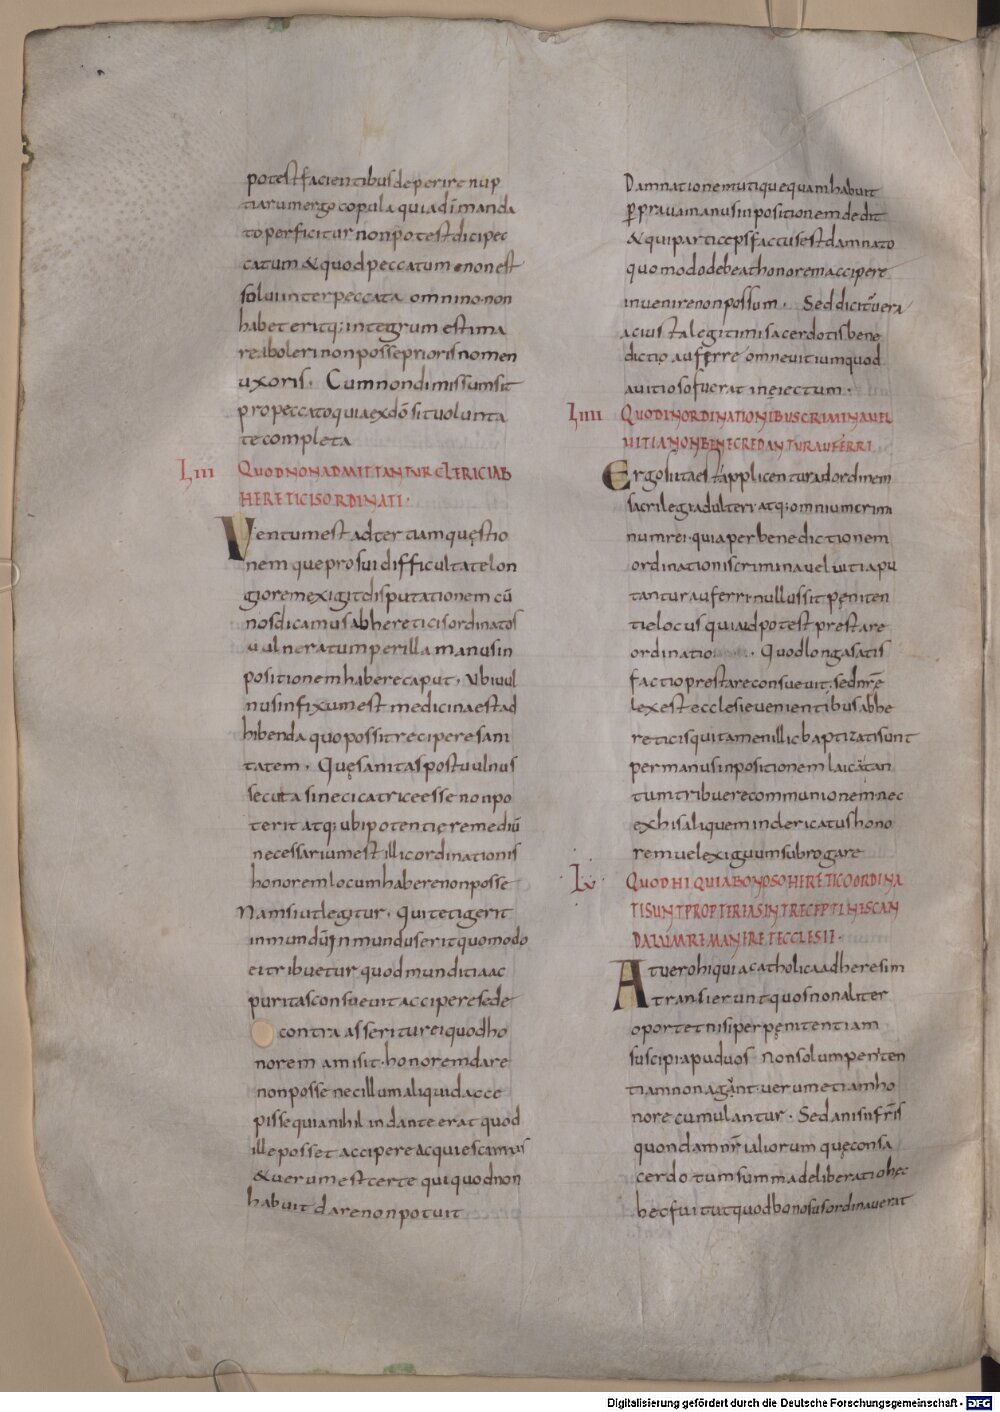 potest facientibus deperire nup
tiarum ergo copula quia dī manda
to perficitur non potest dici pec
catum & quod peccatum non est
solui inter peccata omnino non
habet eritq; integrum estima
re aboleri non posse prioris nomen
uxoris. Cum non dimissum sit
pro peccato quia ex dō sit uolunta
te completa
LIII QUOD NON ADMITTANTUR CLERICI AB
HERETICIS ORDINATI.
Ventum est ad tertiam quęstio
nem que pro sui difficultate lon
giorem exigit disputationem cū
nos dicamus ab hereticis ordinatos
uulneratum per illa manus in
positionem habere caput. Ubi uul
nus infixum est medicina est ad
hibenda quo possit recipere sani
tatem. Quę sanitas post uulnus
secuta sine cicatrice esse non po
terit atq; ubi potentię remediū
necessarium est illic ordinationis
honorem locum habere non posse
Nam si ut legitur. Qui tetigerit
inmundū inmundus erit quomodo
ei tribuetur quod munditia ac
puritas consueuit accipere sed e
contra asseritur ei quod ho
norem amisit. honorem dare
non posse nec illum aliquid acce
pisse quia nihil in dante erat quod
ille posset accipere acquiescamus
& uerum est certe qui quod non
habuit dare non potuit
Damnationem utique quam habuit
ꝑ prauam manus inpositionem dedit
& qui particeps factus est damnato
quomodo debeat honorem accipere
inuenire non possum. Sed dicit uera
ac iusta legitimi sacerdotis bene
dictio auferre omne uitium quod
a uitioso fuerat iniectum.
LIIII QUOD IN ORDINATIONIBUS CRIMINA UEL
UITIA NON BENE CREDANTUR AUFERRI
Ergo si ita est applicentur ad ordinem
sacrilegi adulteri atq; omnium crimi
num rei. quia per benedictionem
ordinationis crimina uel uitia pu
tantur auferri nullus sit pęniten
tie locus quia id potest prestare
ordinatio. Quod longa satis
factio prestare consueuit; sed nr̄e
lex est ecclesie uenientibus ab he
reticis qui tamen illic baptizati sunt
per manus inpositionem laicā tan
tum tribuere communionem nec
ex his aliquem in clericatus hono
rem uel exiguum subrogare
LV QUOD HI QUI A BONOSO HERETICO ORDINA
TI SUNT PROPTEREA SINT RECEPTI NE SCAN
DALUM REMANERET ECCLESIE.
At uero hi qui a catholica ad heresim
transierunt quos non aliter
oportet nisi per pęnitentiam
suscipi apud uos non solum peniten
tiam non agant uerum etiam ho
nore cumulantur. Sed anisi fr̄is
quondam nr̄i aliorum quę consa
cerdotum summa deliberatio hec
hec fuit ut quod bonosus ordinauerat
Digitalisierung gefördert durch die Deutsche Forschungsgemeinschaft - DFG